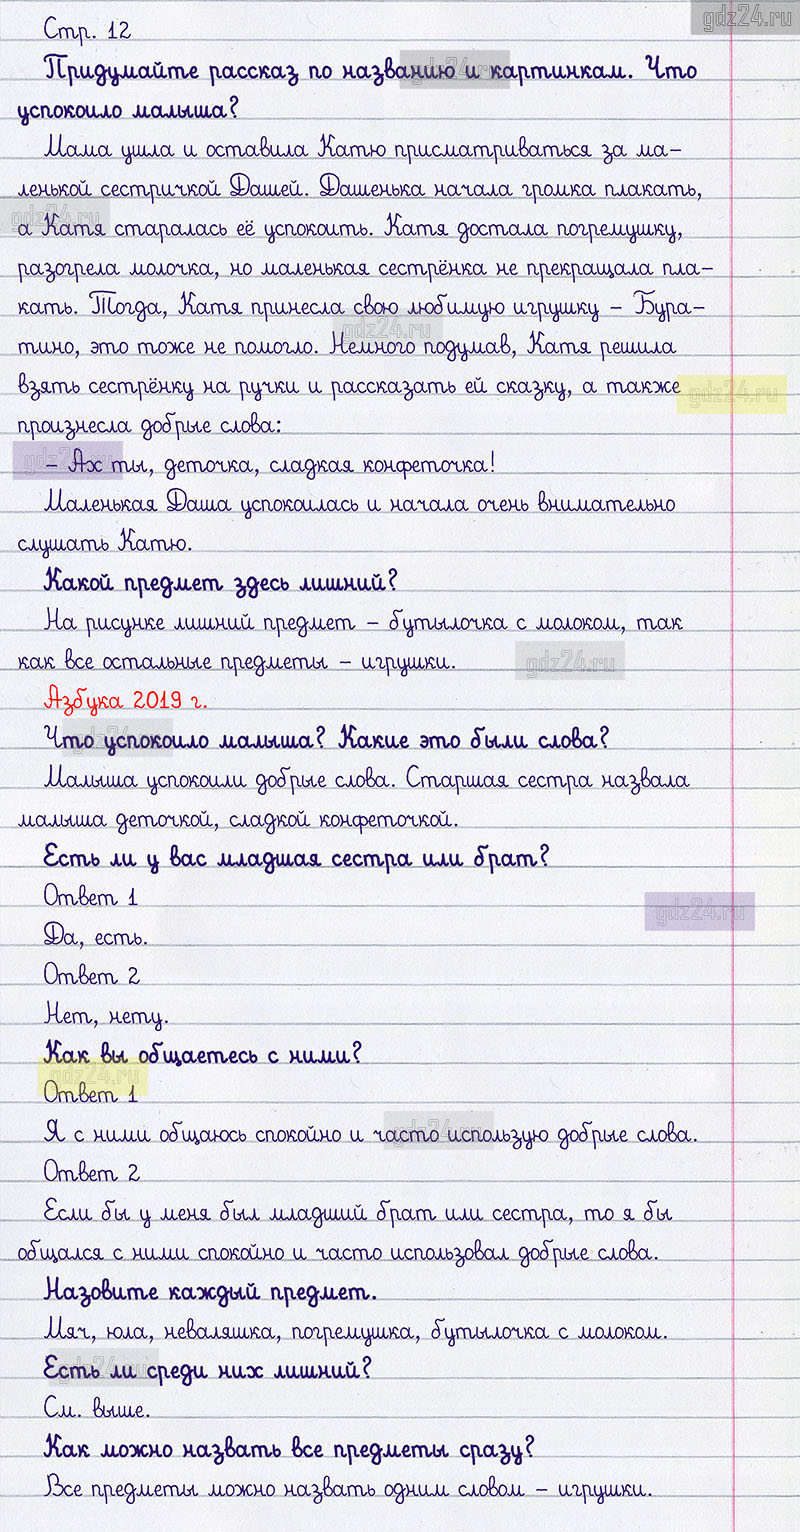 gdz24.ru
Стр. 12
Придумайте рассказ по названию и картинкам. Что
gdz24.ru
успокоило малыша?
Мама ушла и оставила Катю присматриваться за ма-
ленькой сестричкой Дашей. Дашенька начала громка плакать,
gdz24.ru
а Катя старалась её успокоить. Катя достала погремушку,
разогрела молочка, но маленькая сестрёнка не прекращала пла-
кать. Тогда, Катя принесла свою любимую игрушку – Бура-
gdz24.ru
тино, это тоже не помогло. Немного подумав, Катя решила
взять сестрёнку на ручки и рассказать ей сказку, а также
gdz24.ru
произнесла добрые слова:
gdz24.ru
– Ах ты, деточка, сладкая конфеточка!
Маленькая Даша успокоилась и начала очень внимательно
слушать Катю.
Какой предмет здесь лишний?
На рисунке лишний предмет – бутылочка с молоком, так
как все остальные предметы – игрушки.
gdz24.ru
Азбука 2019 г.
Что успокоило малыша? Какие это были слова?
gdz24.ru
Малыша успокоили добрые слова. Старшая сестра назвала
малыша деточкой, сладкой конфеточкой.
Есть ли у вас младшая сестра или брат?
Ответ 1
gdz24.ru
Да, есть.
Ответ 2
Нет, нету.
Как вы общаетесь с ними?
gdz24.ru
Ответ 1
Я с ними общаюсь спокойно и часто использую добрые слова.
gdz24.ru
Ответ 2
Если бы у меня был младший брат или сестра, то я бы
общался с ними спокойно и часто использовал добрые слова.
Назовите каждый предмет.
Мяч, юла, неваляшка, погремушка, бутылочка с молоком.
Есть ли среди них лишний?
gdz24.ru
См. выше.
Как можно назвать все предметы сразу?
Все предметы можно назвать одним словом – игрушки.